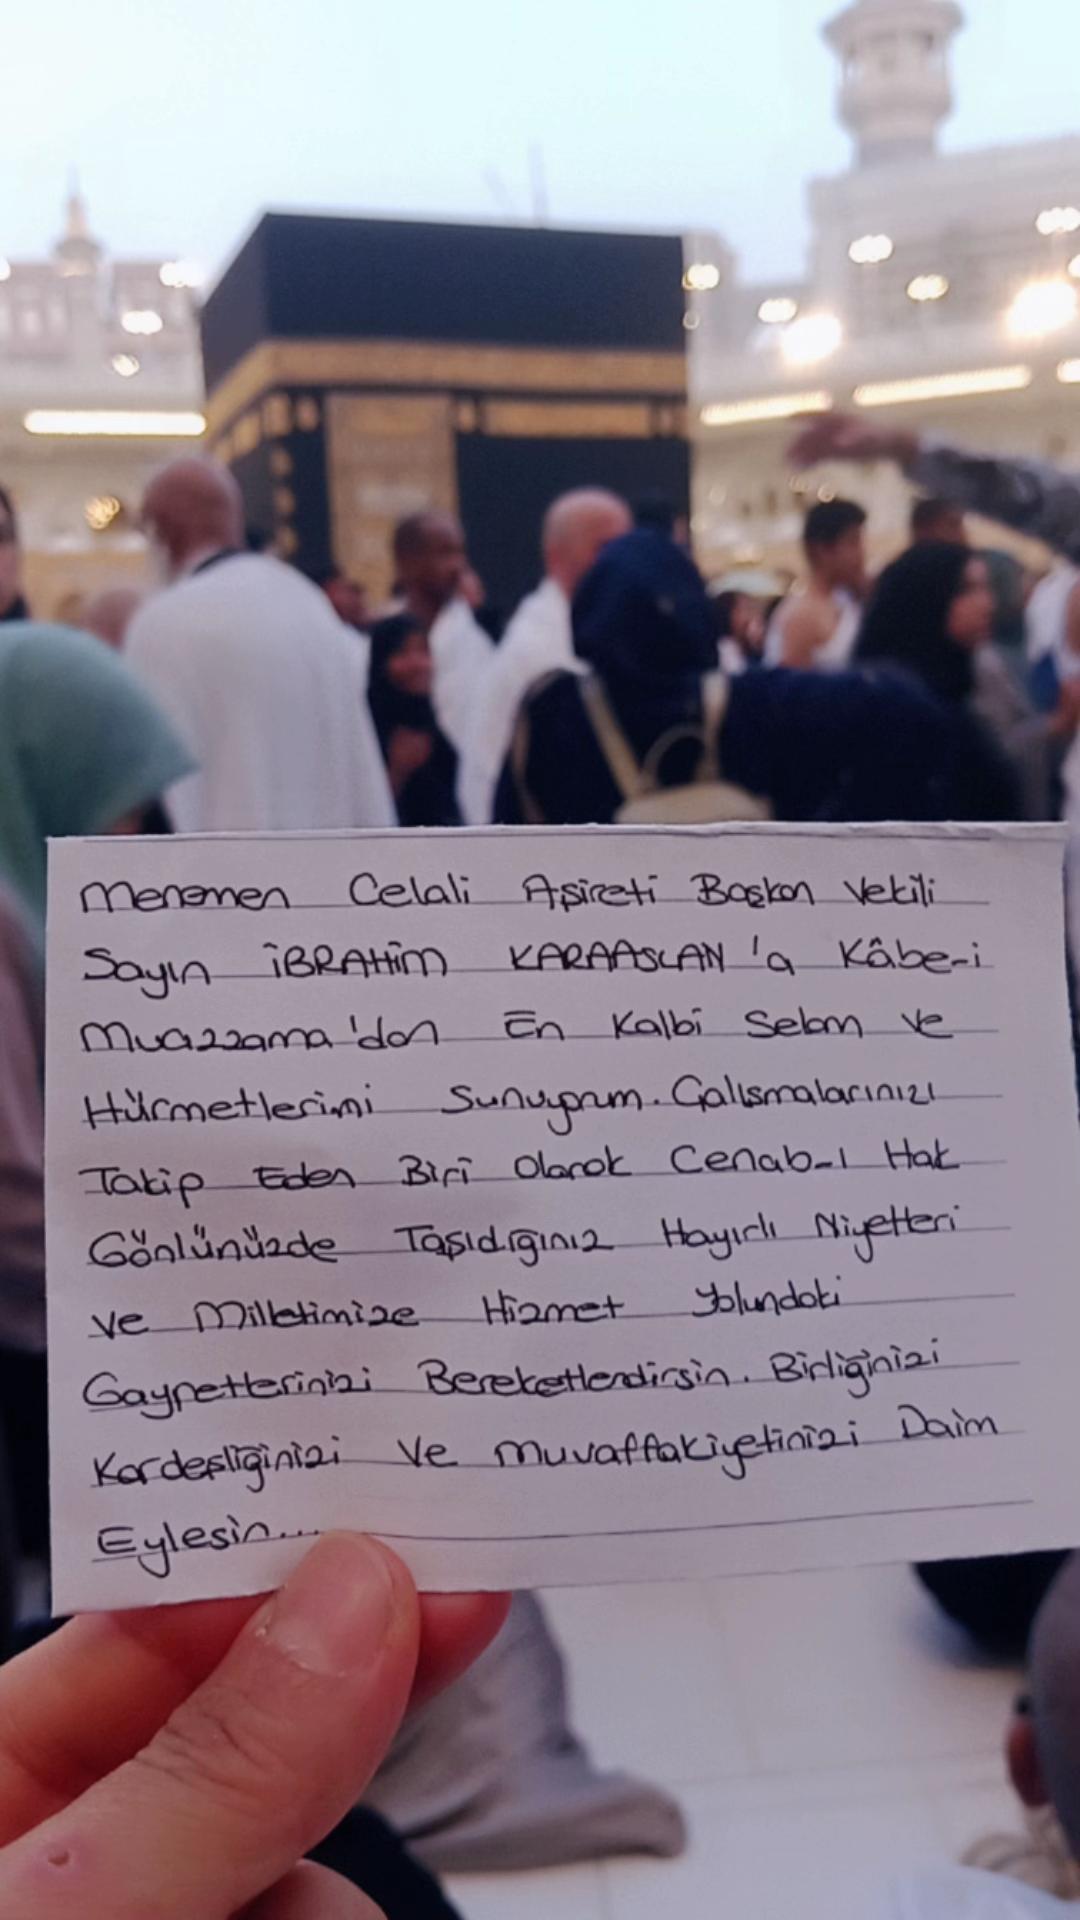 Menemen Celali Aşireti Başkan Vekili
Sayın İBRAHİM KARAASLAN'a Kâbe-i
Muazzama'dan En Kalbi Selam ve
Hürmetlerimi Sunuyorum. Çalışmalarınızı
Takip Eden Biri Olarak Cenab-ı Hak
Gönlünüzde Taşıdığınız Hayırlı Niyetleri
ve Milletimize Hizmet Yolundaki
Gayretlerinizi Bereketlendirsin. Birliğinizi
Kardeşliğinizi ve muvaffakiyetinizi Daim
Eylesin....